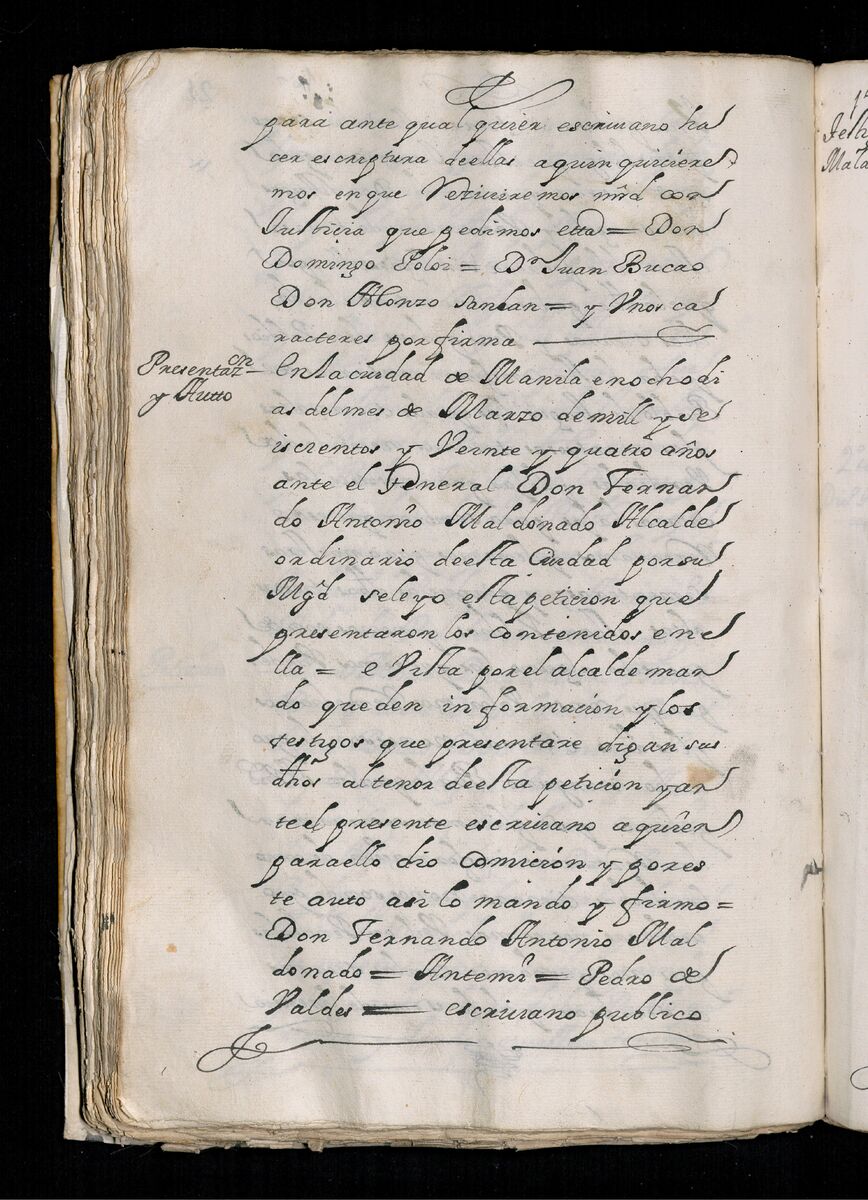 para ante qual quier escriuano ha
cer escriptura deellas aquin quiciere
mos enque Reziuiremos mrd con
Justicia que pedimos ettta = Don
Domingo Poloi = Dn Juan Bucao
Don Alonzo sanlan = y Vnos ca
racteres por firma
Presentazon
y Autto
En la ciudad de Manila en ocho di
as del mes de Marzo de mill y se
iscientos y Veinte y quatro años
ante el General Don Fernan
do Antonio Maldonado Alcalde
ordinario deesta Ciudad por su
Mgd seleyo esta peticion que
presentaron los contenidos en e
lla = e Vista por el alcalde man
do que den in formación y los
testigos que presentare digan sus
dhos al tenor deesta petición y an
te el presente escriuano a quien
para ello dio Comición y por es
te auto asi lo mando y firmo =
Don Fernando Antonio Mal
donado = Antemi = Pedro de
Valdes = escriuano publico